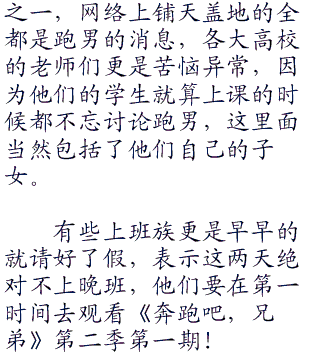 之一，网络上铺天盖地的全
都是跑男的消息，各大高校
的老师们更是苦恼异常，因
为他们的学生就算上课的时
候都不忘讨论跑男，这里面
当然包括了他们自己的子
女。
有些上班族更是早早的
就请好了假，表示这两天绝
对不上晚班，他们要在第一
时间去观看《奔跑吧，兄
弟》第二季第一期！